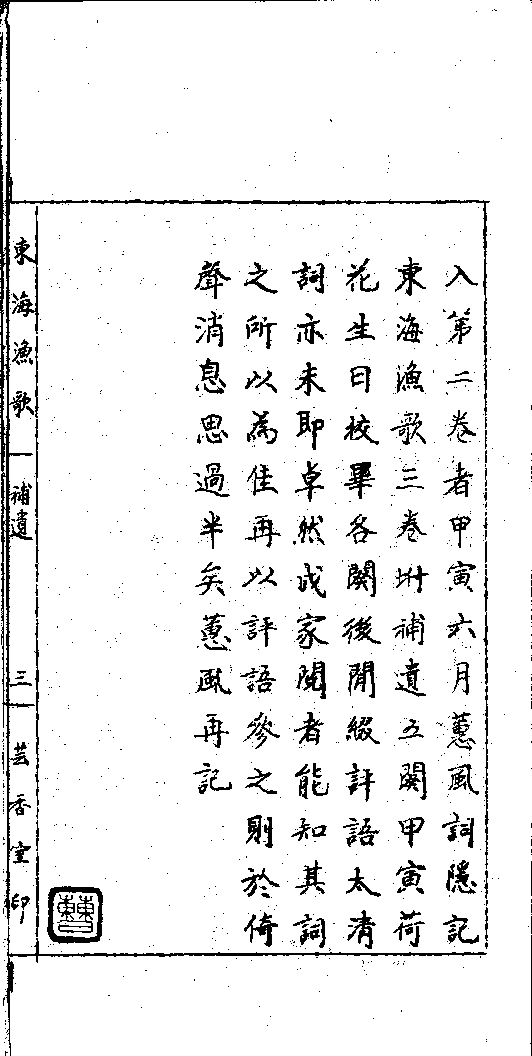 入第二卷者甲寅六月蕙風詞隱記
東海漁歌三卷坿補遺五闋甲寅荷
花生日校畢各闋後閒綴評語太清
詞亦未即卓然成家閱者能知其詞
之所以為佳再以評語參之則於倚
聲消息思過半矣蕙風再記
東海漁歌 補遺 三 芸香室印